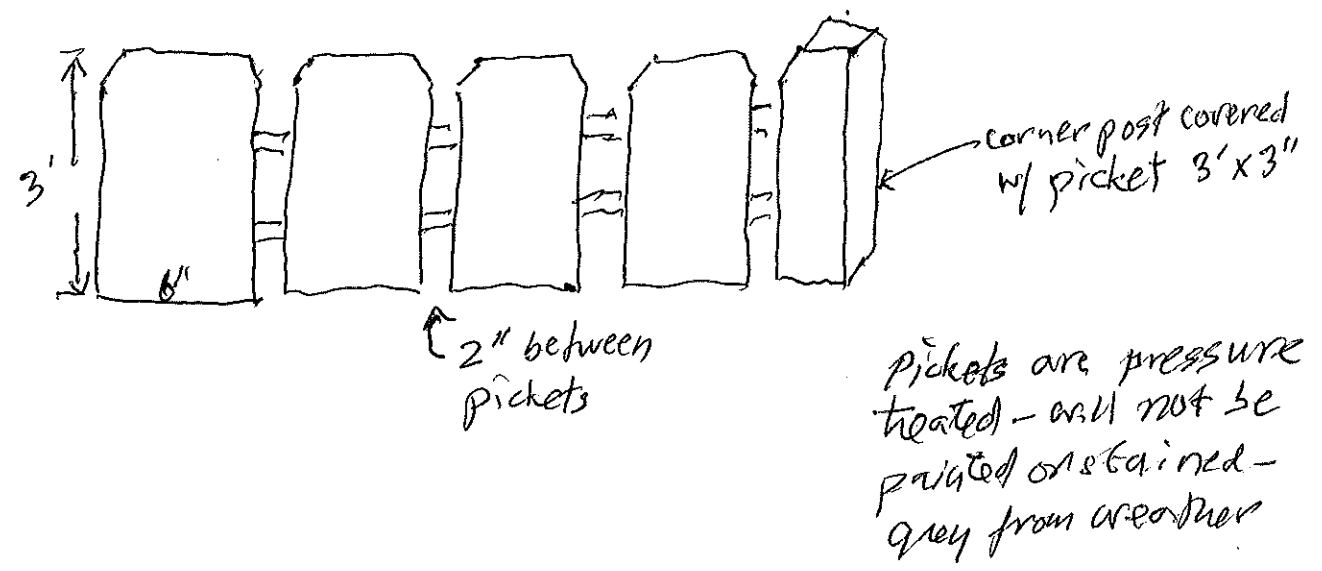 3'
6"
2" between
pickets
corner post covered
w/ picket 3' x 3"
Pickets are pressure
treated - will not be
painted or stained -
grey from weather